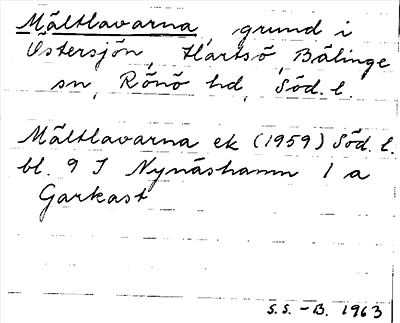 Mältlavarna, grund i
Östersjön, Hartsö, Bälinge
sn, Rönö hd, Söd. l.
Mältlavarna ek (1959) Söd. l.
bl. 9 I Nynäshamn 1 a
Garkast
S.S. - B. 1963